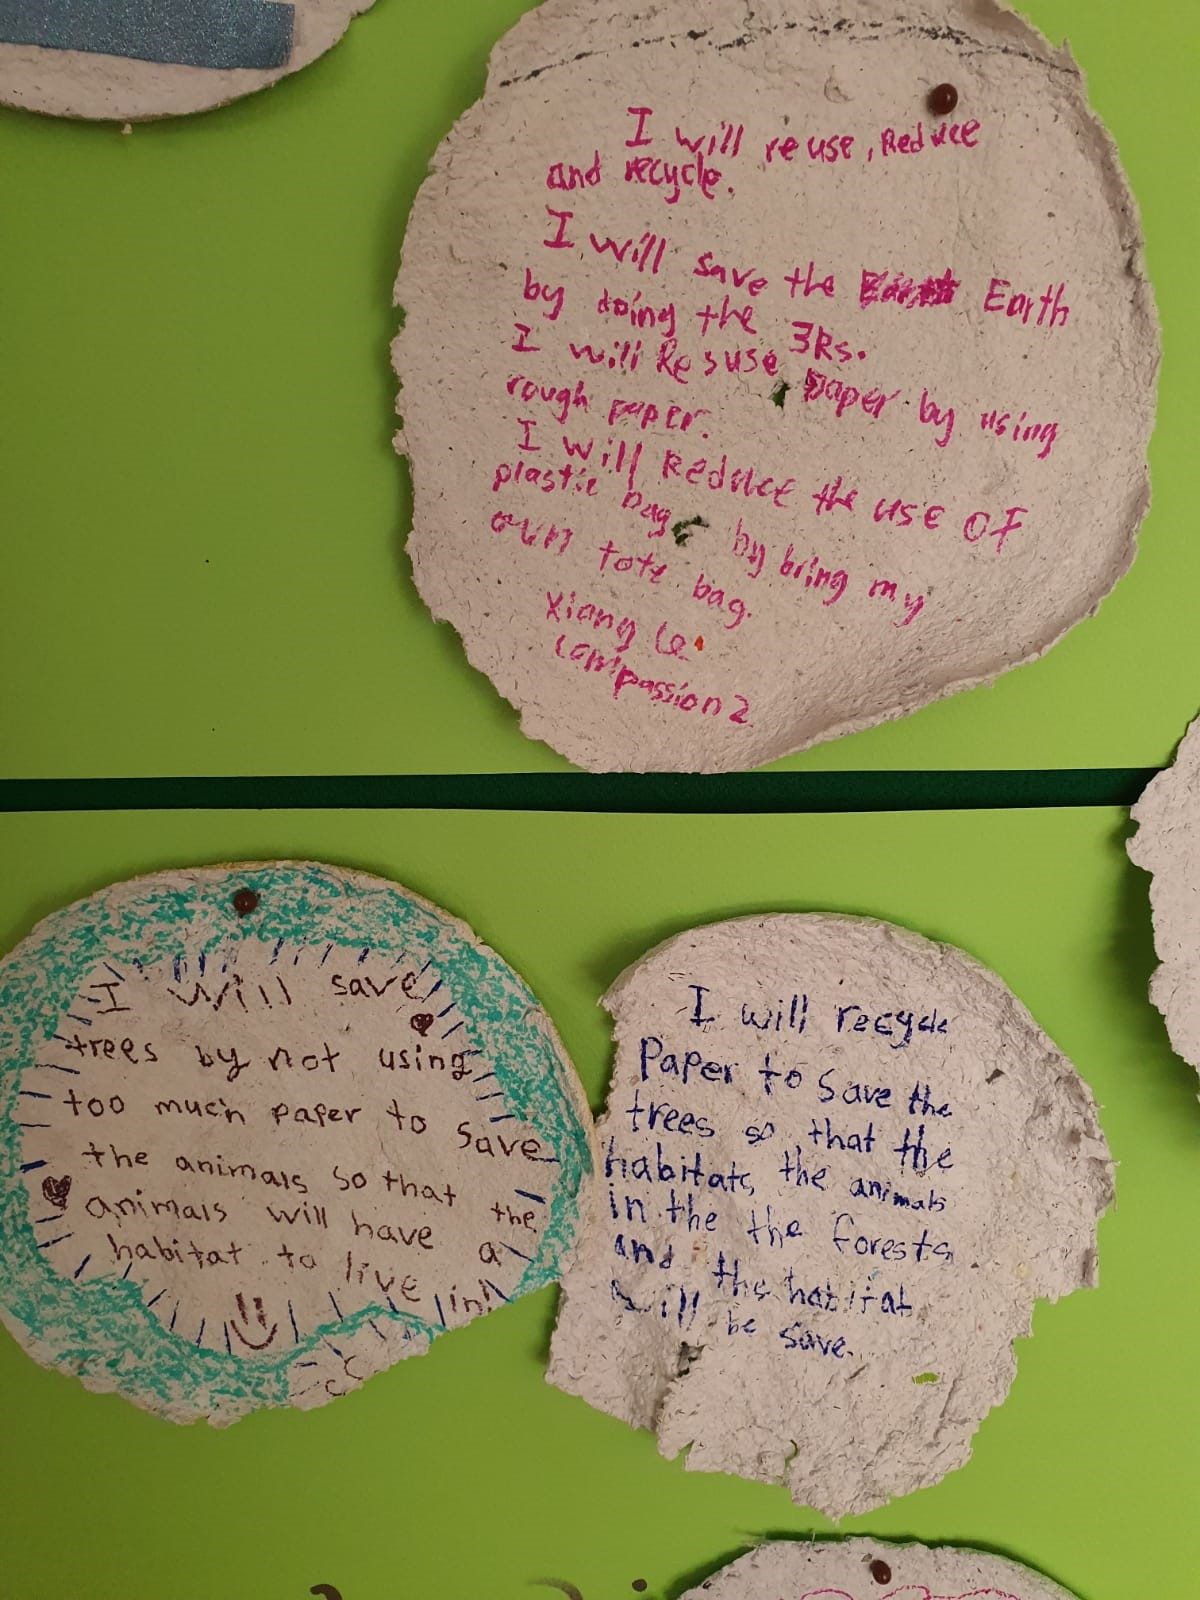 I will reuse, Reduce
and recycle.
I will save the Earth
by doing the 3Rs.
I will Re suse paper by using
rough paper.
I will Reduce the use of
plastic bag by bring my
own tote bag.
Xiang Le
Compassion 2
I will save
trees by not using
too much paper to save
the animals so that the
animals will have a
habitat to live in!
I will recycle
Paper to save the
trees so that the
habitats the animals
in the the forests
and the habitat
will be save.